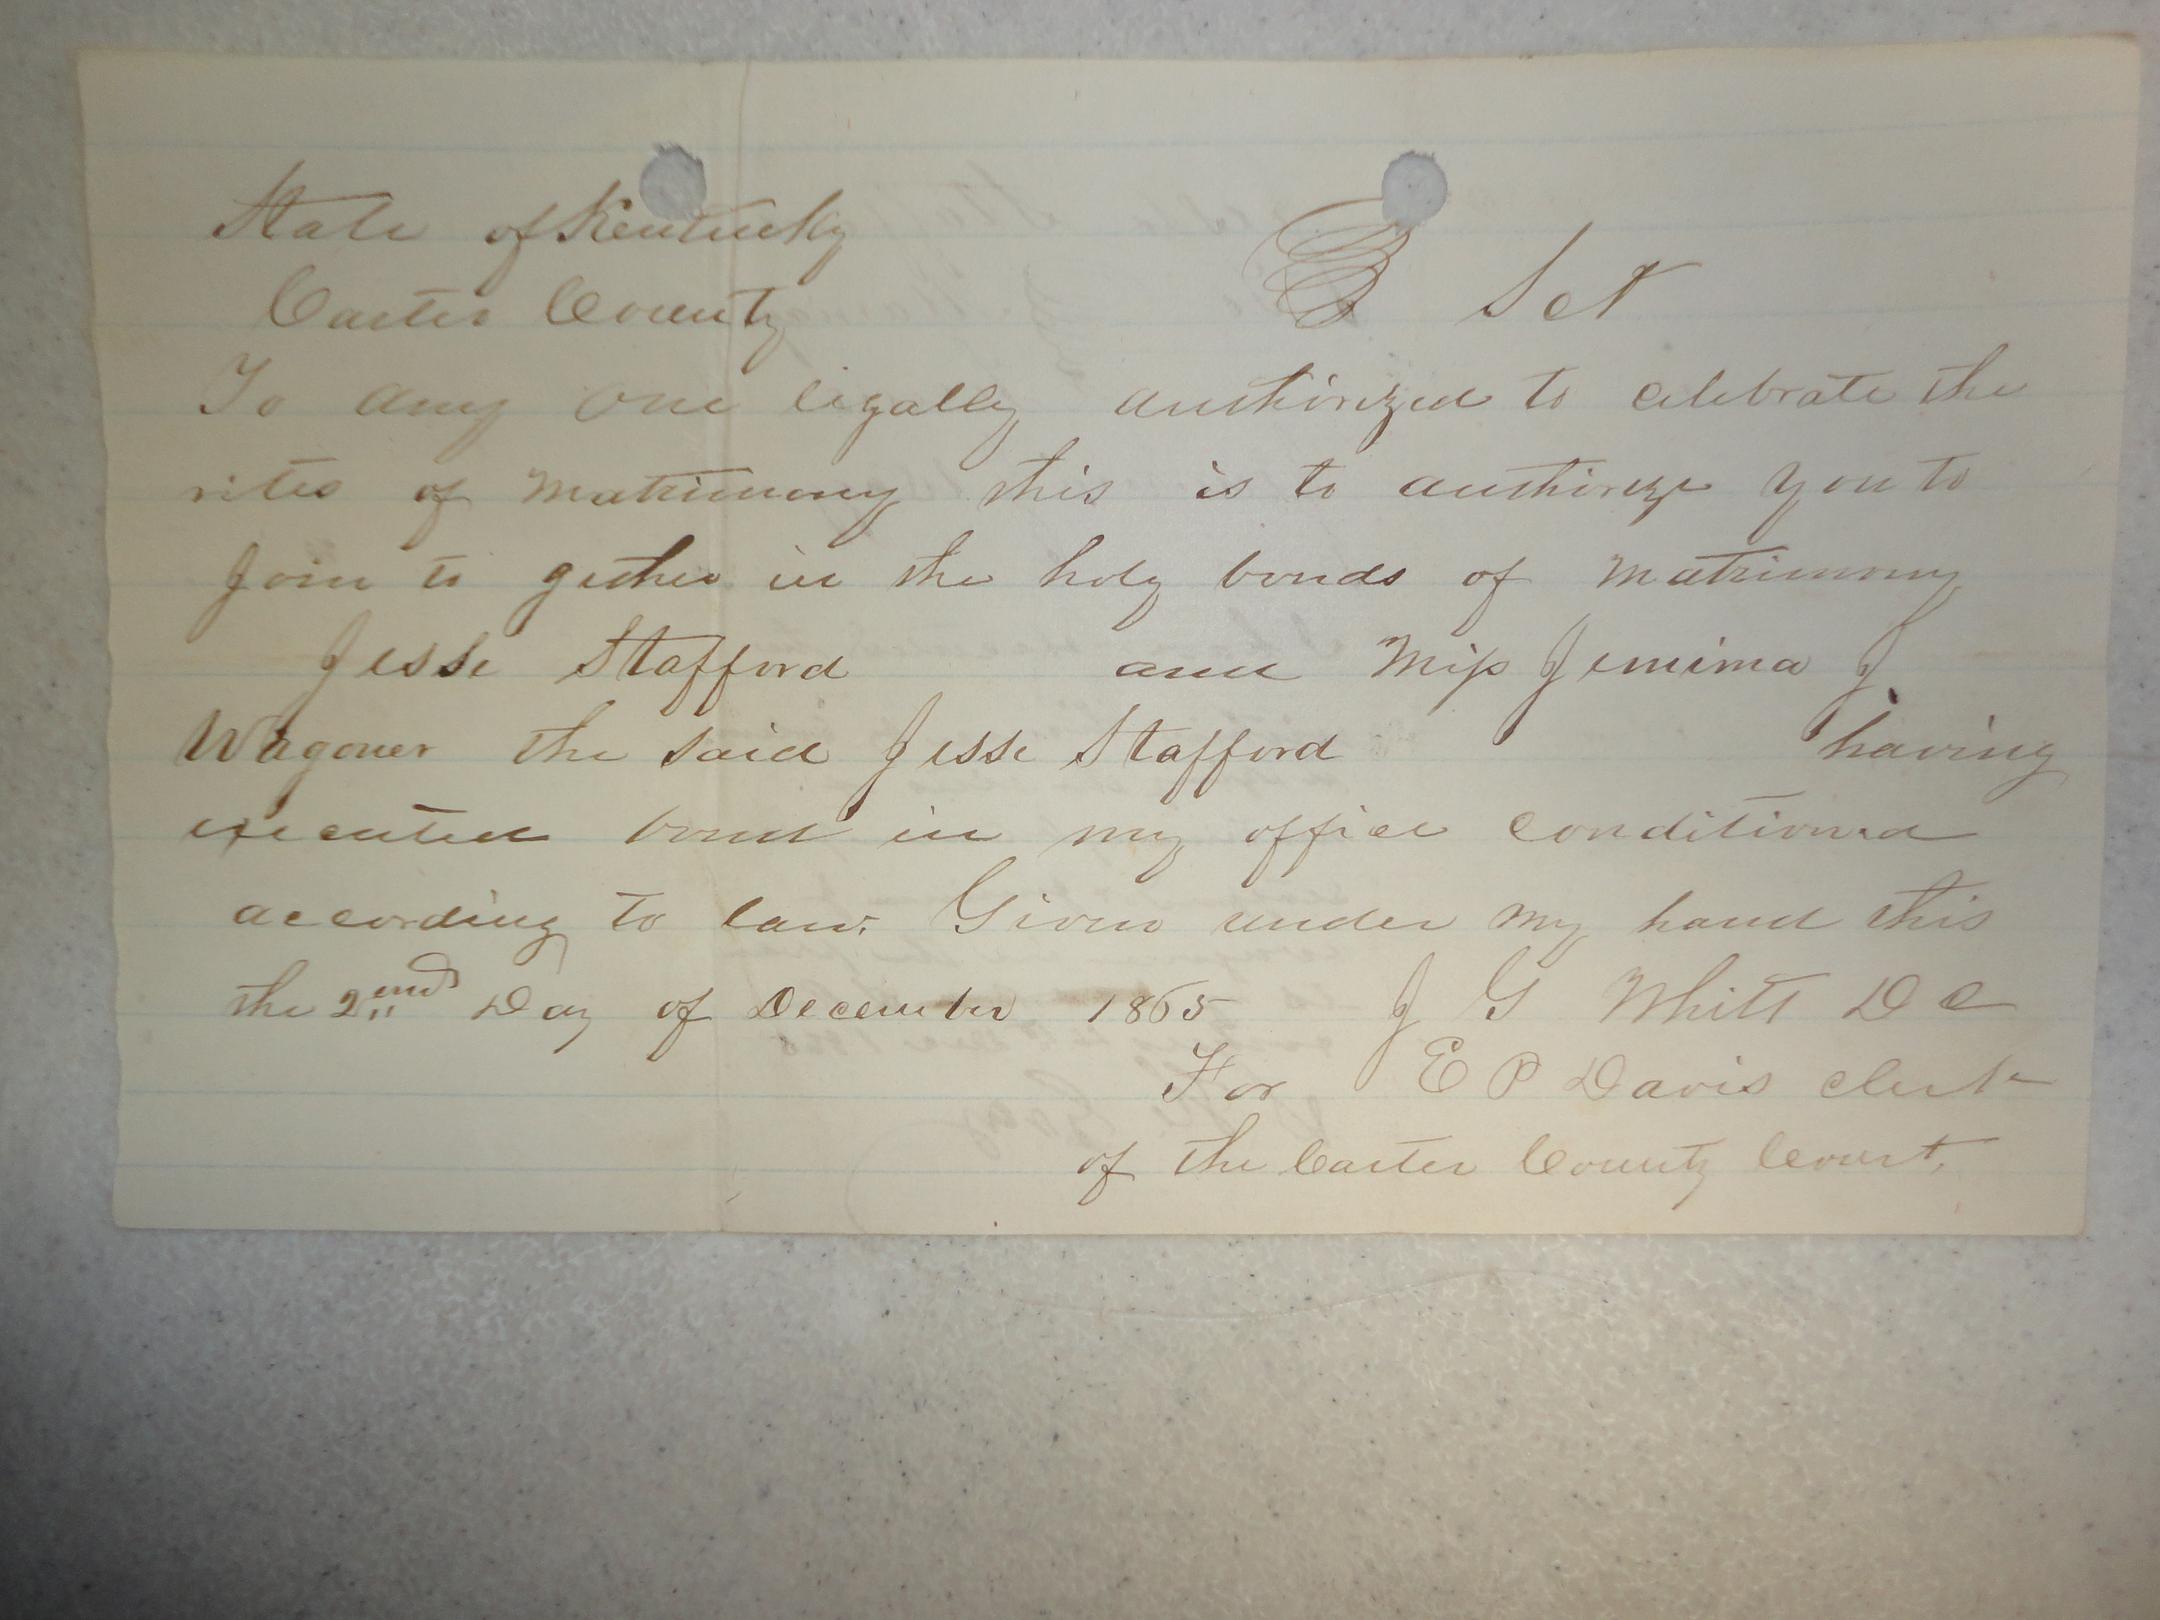 State of Kentucky
Carter County Sct
To any one legally authorized to celebrate the
rites of Matrimony this is to authorize you to
Join to gether in the holy bonds of Matrimony
Jesse Stafford and Miss Jemima J
Wagoner the said Jesse Stafford having
executed bond in my office conditioned
according to law. Given under my hand this
the 2nd Day of December 1865 J G Whitt D C
For E P Davis clerk
of the Carter County Court.